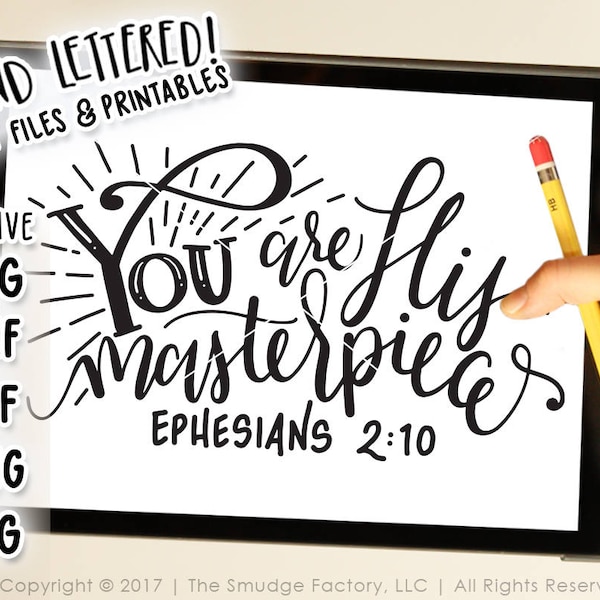 ND LETTERED!
FILES & PRINTABLES
IVE
G
F
F
G
G
You are His
masterpiece
EPHESIANS 2:10
HB
Copyright © 2017 | The Smudge Factory, LLC | All Rights Reserv